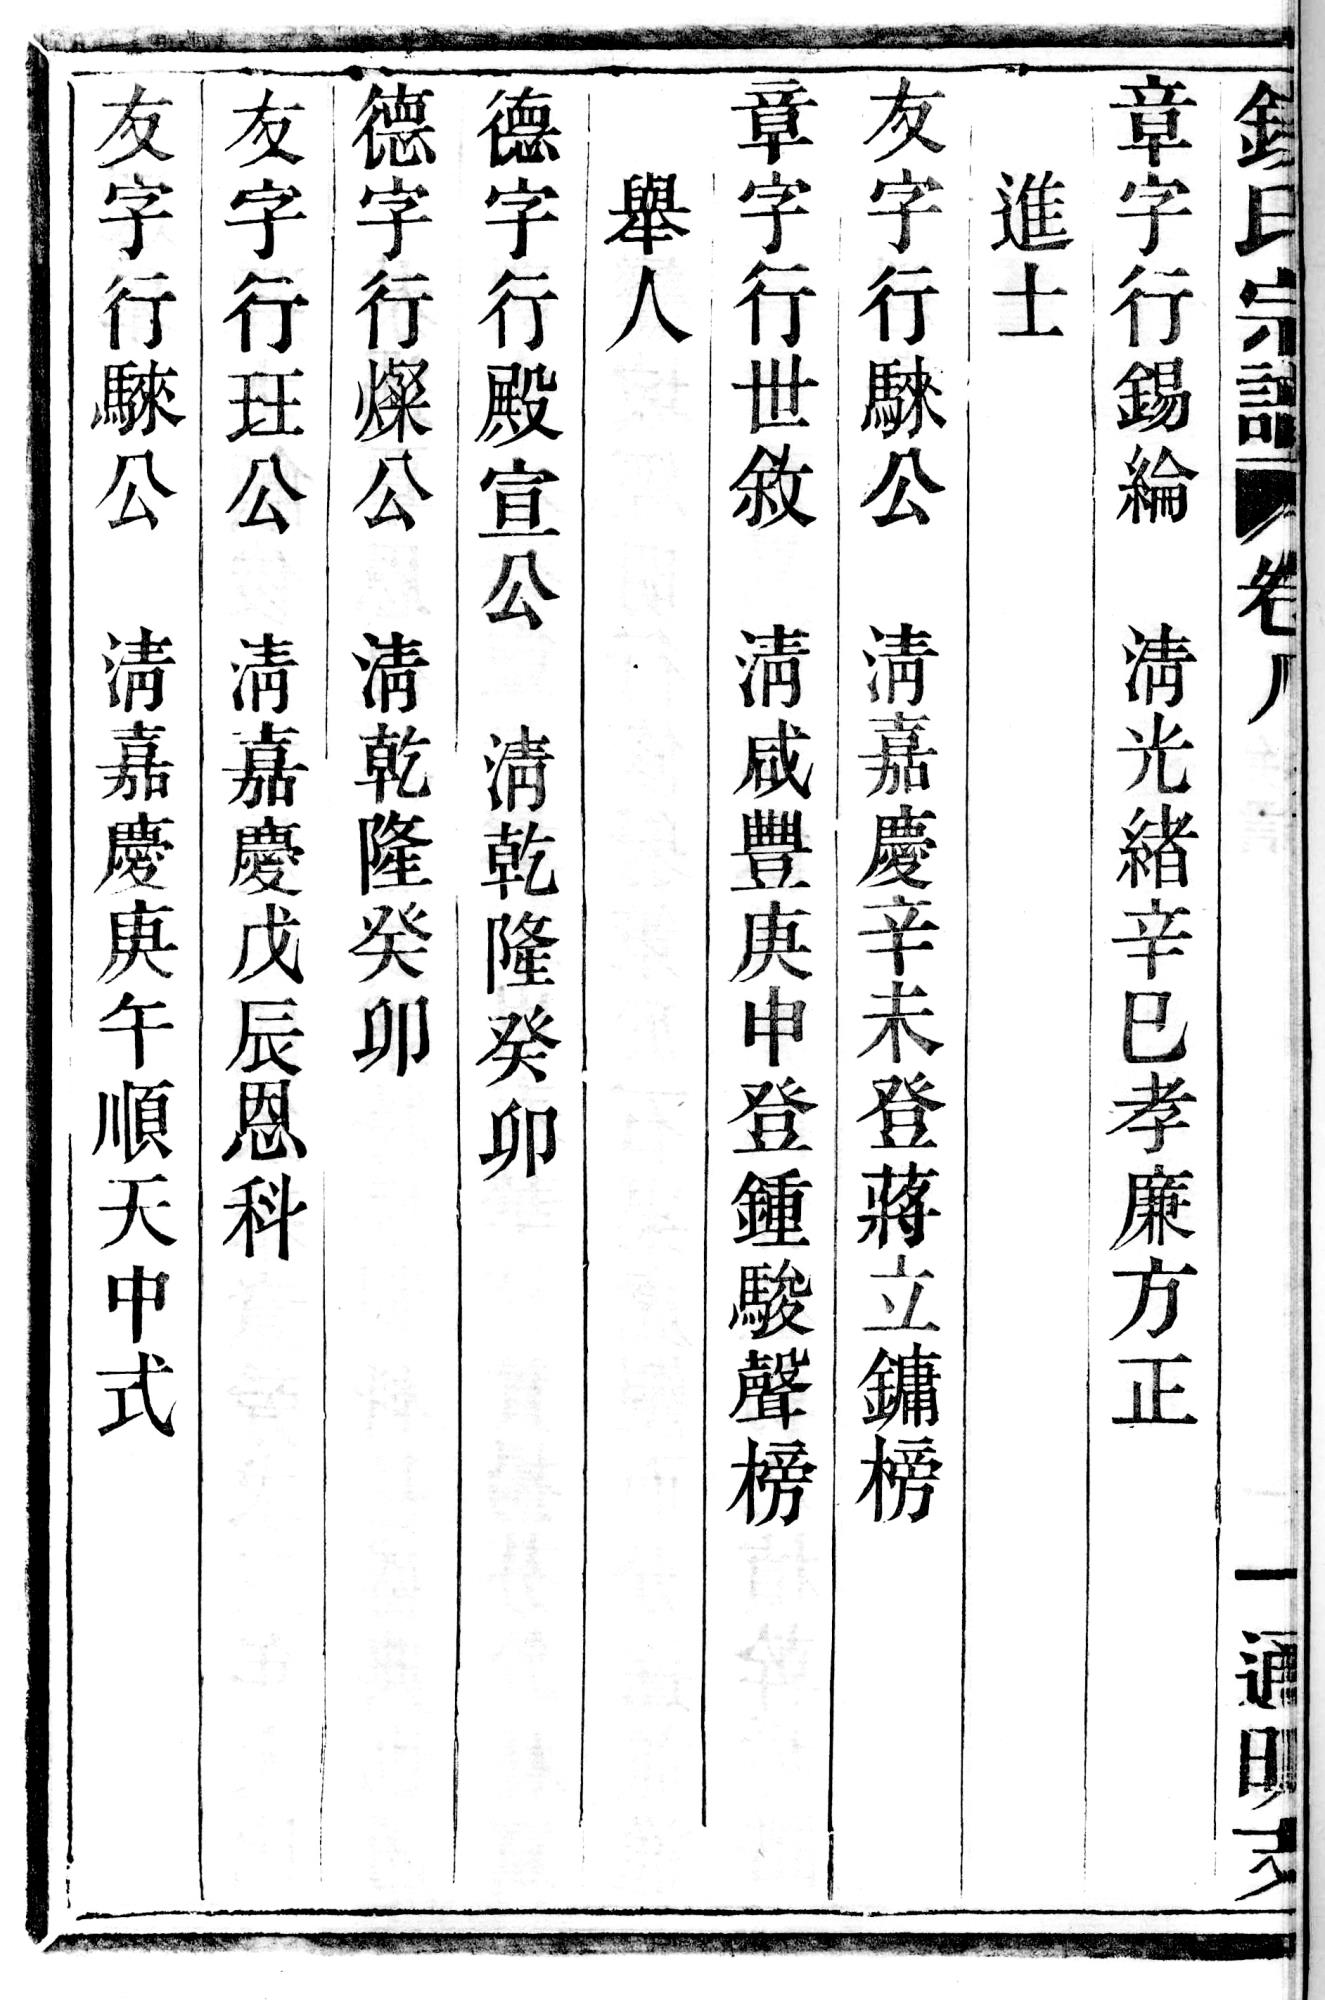 錢氏宗譜 卷八 一 通明支
章字行錫綸 淸光緒辛巳孝廉方正
進士
友字行騋公 淸嘉慶辛未登蔣立鏞榜
章字行世敘 淸咸豐庚申登鍾駿聲榜
舉人
德字行殿宣公 淸乾隆癸卯
德字行燦公 淸乾隆癸卯
友字行珏公 淸嘉慶戊辰恩科
友字行騋公 淸嘉慶庚午順天中式